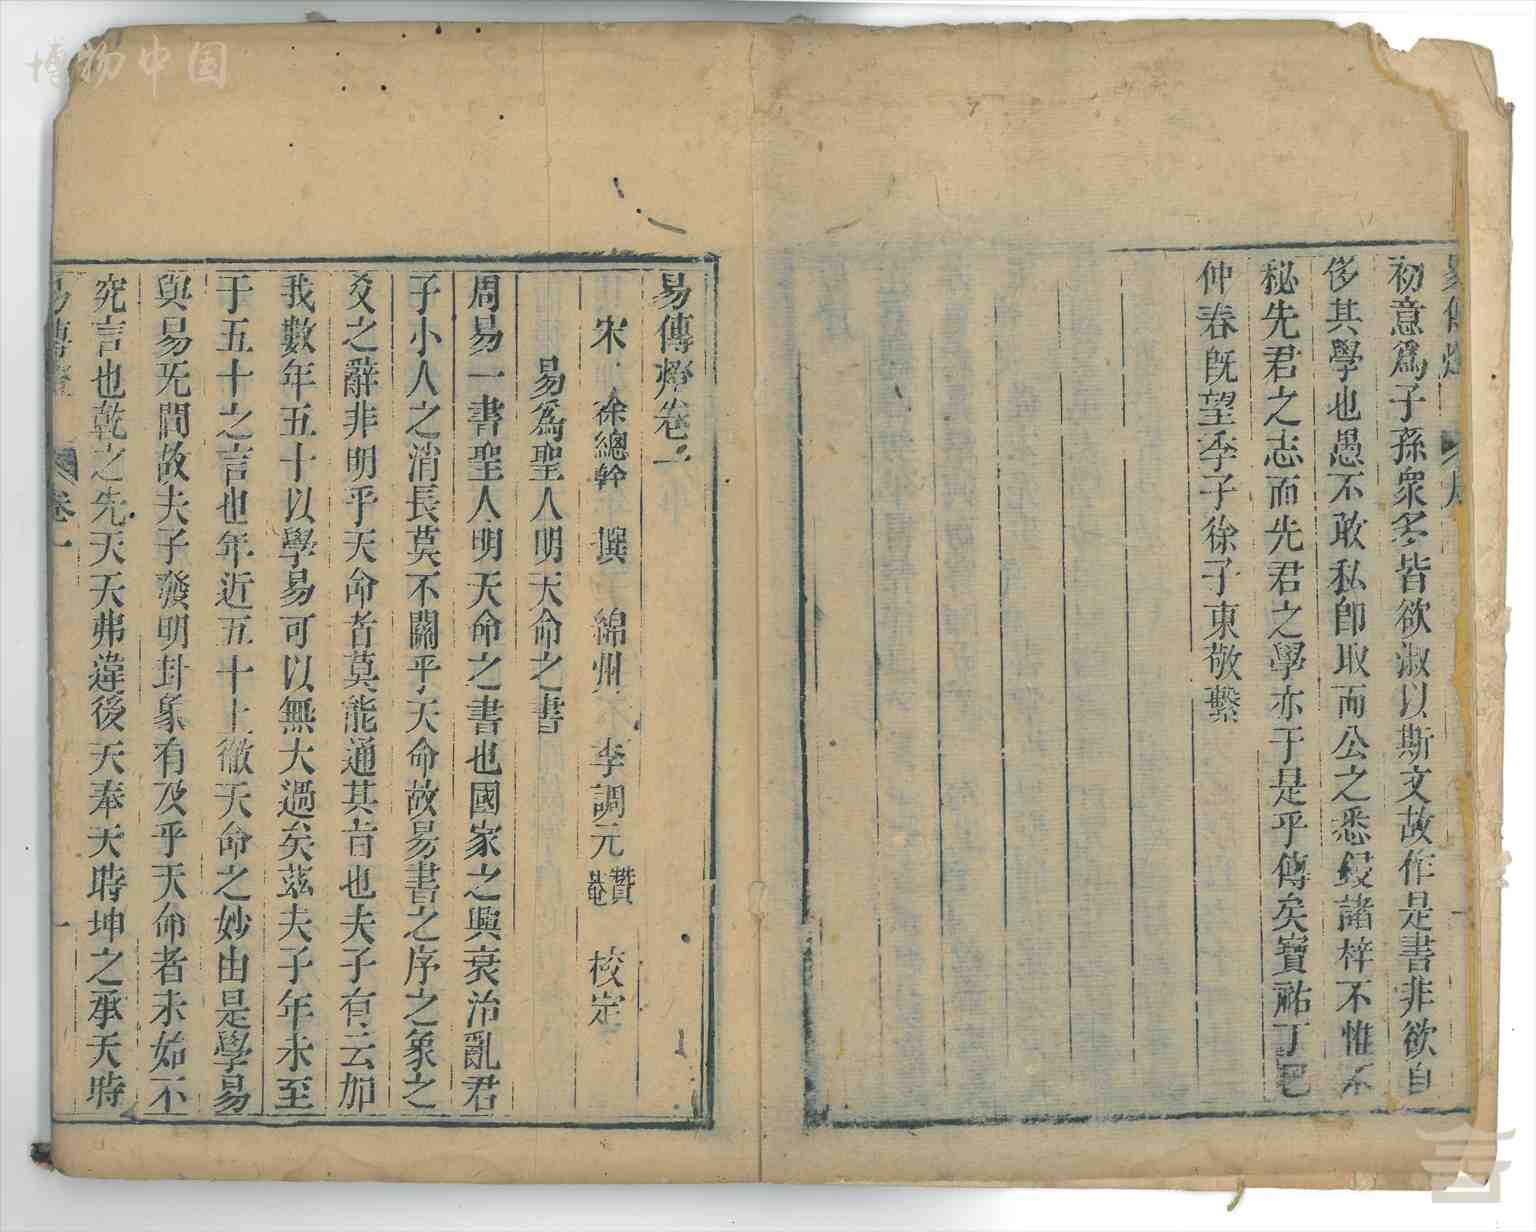 博物中国
易傳燈
序
初意爲子孫衆多皆欲淑以斯文故作是書非欲自
侈其學也愚不敢私卽取而公之悉鋟諸梓不惟不
秘先君之志而先君之學亦于是乎傳矣寶祐丁巳
仲春旣望季子徐子東敬繫
易傳燈卷一
宋 徐總幹 撰 綿州 李調元 贊菴 校定
易爲聖人明天命之書
周易一書聖人明天命之書也國家之興衰治亂君
子小人之消長莫不關乎天命故易書之序之象之
爻之辭非明乎天命者莫能通其旨也夫子有云加
我數年五十以學易可以無大過矣茲夫子年未至
于五十之言也年近五十上徹天命之妙由是學易
與易无間故夫子發明卦象有及乎天命者未始不
究言也乾之先天天弗違後天奉天時坤之承天時
易傳燈
卷一
一